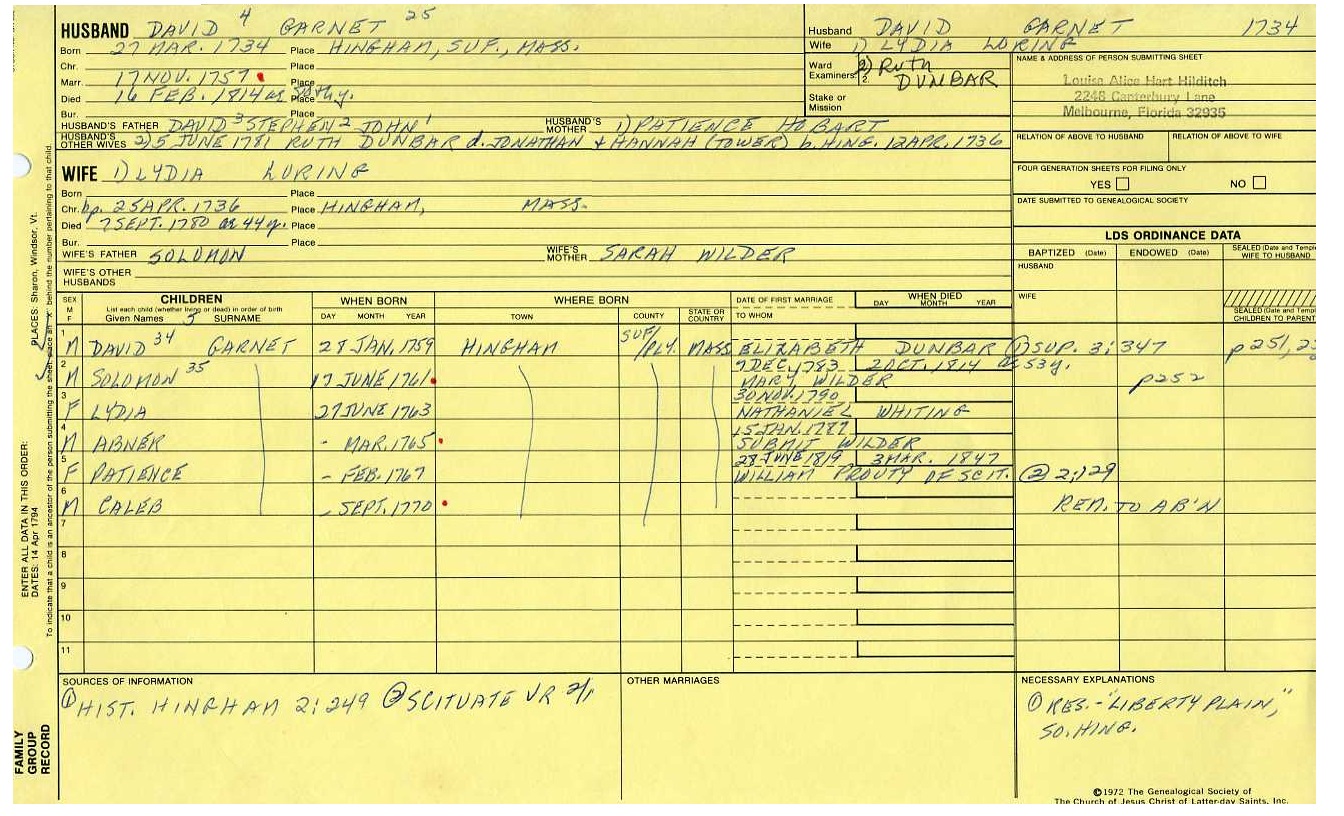 HUSBAND DAVID 4 GARNET 25
Born 27 MAR. 1734 Place HINGHAM, SUF., MASS.
Chr. Place
Marr. 17 NOV. 1757 Place
Died 16 FEB. 1814 Place
Bur. Place
HUSBAND'S FATHER DAVID 3 STEPHEN 2 JOHN 1 HUSBAND'S MOTHER 1) PATIENCE HOBART
HUSBAND'S OTHER WIVES 2) 5 JUNE 1781 RUTH DUNBAR d. JONATHAN & HANNAH (TOWER) b. HING. 12 APR. 1736
Husband DAVID GARNET 1734
Wife 1) LYDIA LORING
Ward
Examiners: 1. 2.
2) RUTH DUNBAR
Stake or Mission
NAME & ADDRESS OF PERSON SUBMITTING SHEET
Louise Alice Hart Hilditch
2248 Canterbury Lane
Melbourne, Florida 32935
RELATION OF ABOVE TO HUSBAND RELATION OF ABOVE TO WIFE
FOUR GENERATION SHEETS FOR FILING ONLY
YES NO
DATE SUBMITTED TO GENEALOGICAL SOCIETY
WIFE 1) LYDIA LORING
Born Place
Chr. bp. 25 APR. 1736 Place HINGHAM, MASS.
Died 7 SEPT. 1780 ae 44 y. Place
Bur. Place
WIFE'S FATHER SOLOMON WIFE'S MOTHER SARAH WILDER
WIFE'S OTHER HUSBANDS
LDS ORDINANCE DATA
BAPTIZED (Date) ENDOWED (Date) SEALED (Date and Temple) WIFE TO HUSBAND
HUSBAND
WIFE
SEALED (Date and Temple) CHILDREN TO PARENTS
SEX M F CHILDREN WHEN BORN WHERE BORN DATE OF FIRST MARRIAGE WHEN DIED
List each child (whether living or dead) in order of birth
Given Names 5 SURNAME DAY MONTH YEAR TOWN COUNTY STATE OR COUNTRY TO WHOM DAY MONTH YEAR
1 M DAVID 34 GARNET 28 JAN. 1759 HINGHAM SUF/PLY. MASS ELIZABETH DUNBAR ① SUP. 3:347 p 251,
2 M SOLOMON 35 17 JUNE 1761 9 DEC. 1783 2 OCT. 1814 ae 53 y. MARY WILDER p 252
3 F LYDIA 27 JUNE 1763 30 NOV. 1790 NATHANIEL WHITING
4 M ABNER - MAR. 1765 15 JAN. 1787 SUBMIT WILDER
5 F PATIENCE - FEB. 1767 28 JUNE 1819 3 MAR. 1847 WILLIAM PROUTY OF SCIT. ② 2:129
6 M CALEB - SEPT. 1770 REM. TO AB'N
7
8
9
10
11
SOURCES OF INFORMATION
① HIST. HINGHAM 2:249 ② SCITUATE VR 2/1
OTHER MARRIAGES
NECESSARY EXPLANATIONS
① RES. - "LIBERTY PLAIN," SO. HING.
©1972 The Genealogical Society of
The Church of Jesus Christ of Latter-day Saints, Inc.
FAMILY GROUP RECORD
ENTER ALL DATA IN THIS ORDER:
DATES: 14 Apr 1794
PLACES: Sharon, Windsor, Vt.
To indicate that a child is an ancestor of the person submitting the sheet, place an "X" behind the number pertaining to that child.